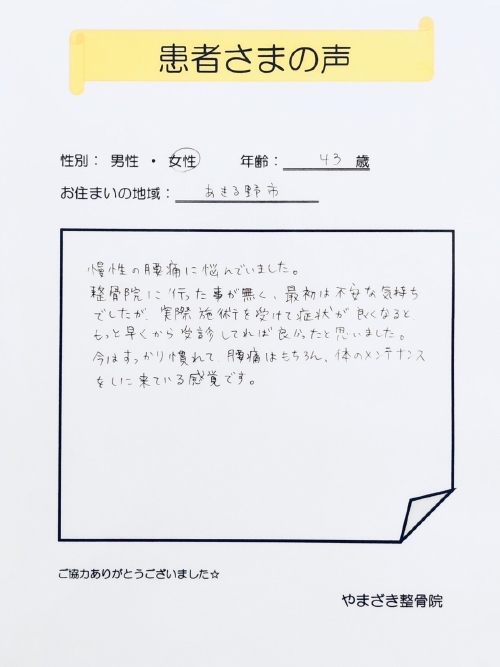 患者さまの声
性別： 男性 ・ 女性 年齢： 43 歳
お住まいの地域： あきる野市
慢性の腰痛に悩んでいました。
整骨院に行った事が無く、最初は不安な気持ち
でしたが、実際施術を受けて症状が良くなると
もっと早くから受診してれば良かったと思いました。
今はすっかり慣れて 腰痛はもちろん、体のメンテナンス
をしに来ている感覚です。
ご協力ありがとうございました☆
やまざき整骨院